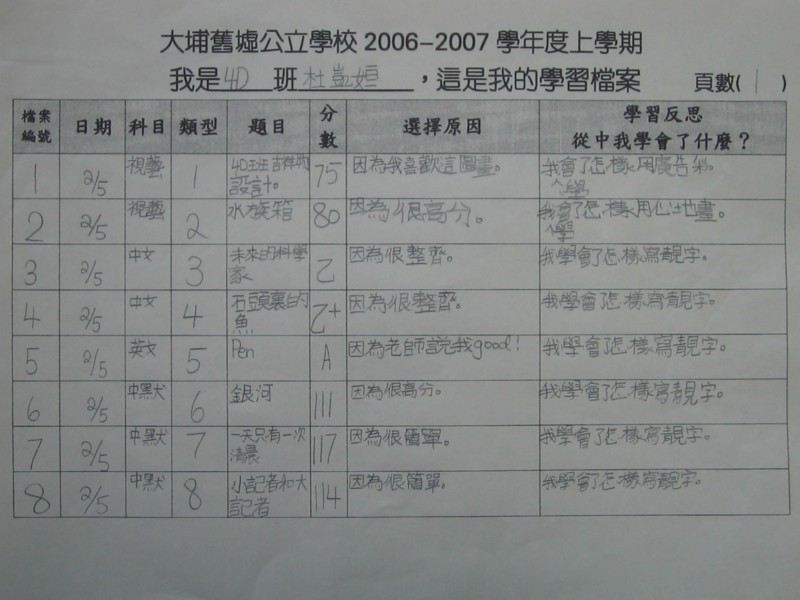 大埔舊墟公立學校 2006-2007 學年度上學期
我是 4D 班 杜豈姮 ，這是我的學習檔案 頁數( 1 )
檔案編號 日期 科目 類型 題目 分數 選擇原因 學習反思 從中我學會了什麼？
1 2/5 視藝 1 4D班吉祥物設計。 75 因為我喜歡這圖畫。 我學會了怎樣用廣告
2 2/5 視藝 2 水族箱 80 因為很高分。 我學會了怎樣用心地畫。
3 2/5 中文 3 未來的科學家 乙 因為很整齊。 我學會了怎樣寫靚字。
4 2/5 中文 4 石頭裏的魚 乙+ 因為很整齊。 我學會了怎樣寫靚字。
5 2/5 英文 5 Pen A 因為老師說我good! 我學會了怎樣寫靚字。
6 2/5 中默 6 銀河 111 因為很高分。 我學會了怎樣寫靚字。
7 2/5 中默 7 一天只有一次清晨 117 因為很簡單。 我學會了怎樣寫靚字。
8 2/5 中默 8 小記者和大記者 114 因為很簡單。 我學會了怎樣寫靚字。